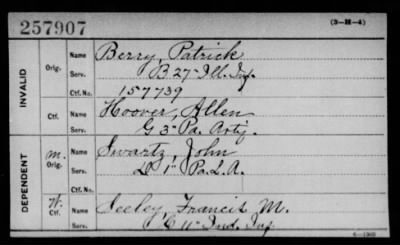 257907 (3-H-4)
INVALID
Orig. Name Berry, Patrick
Serv. B 27" Ill. Inf.
Ctf. No. 157739
Ctf. Name Hoover, Allen
Serv. G 3" Pa. Arty.
DEPENDENT
M. Orig. Name Swartz, John
Serv. D 1" Pa. L. A.
W. Ctf. Name Seeley, Francis M.
Serv. C 11" Ind. Inf.